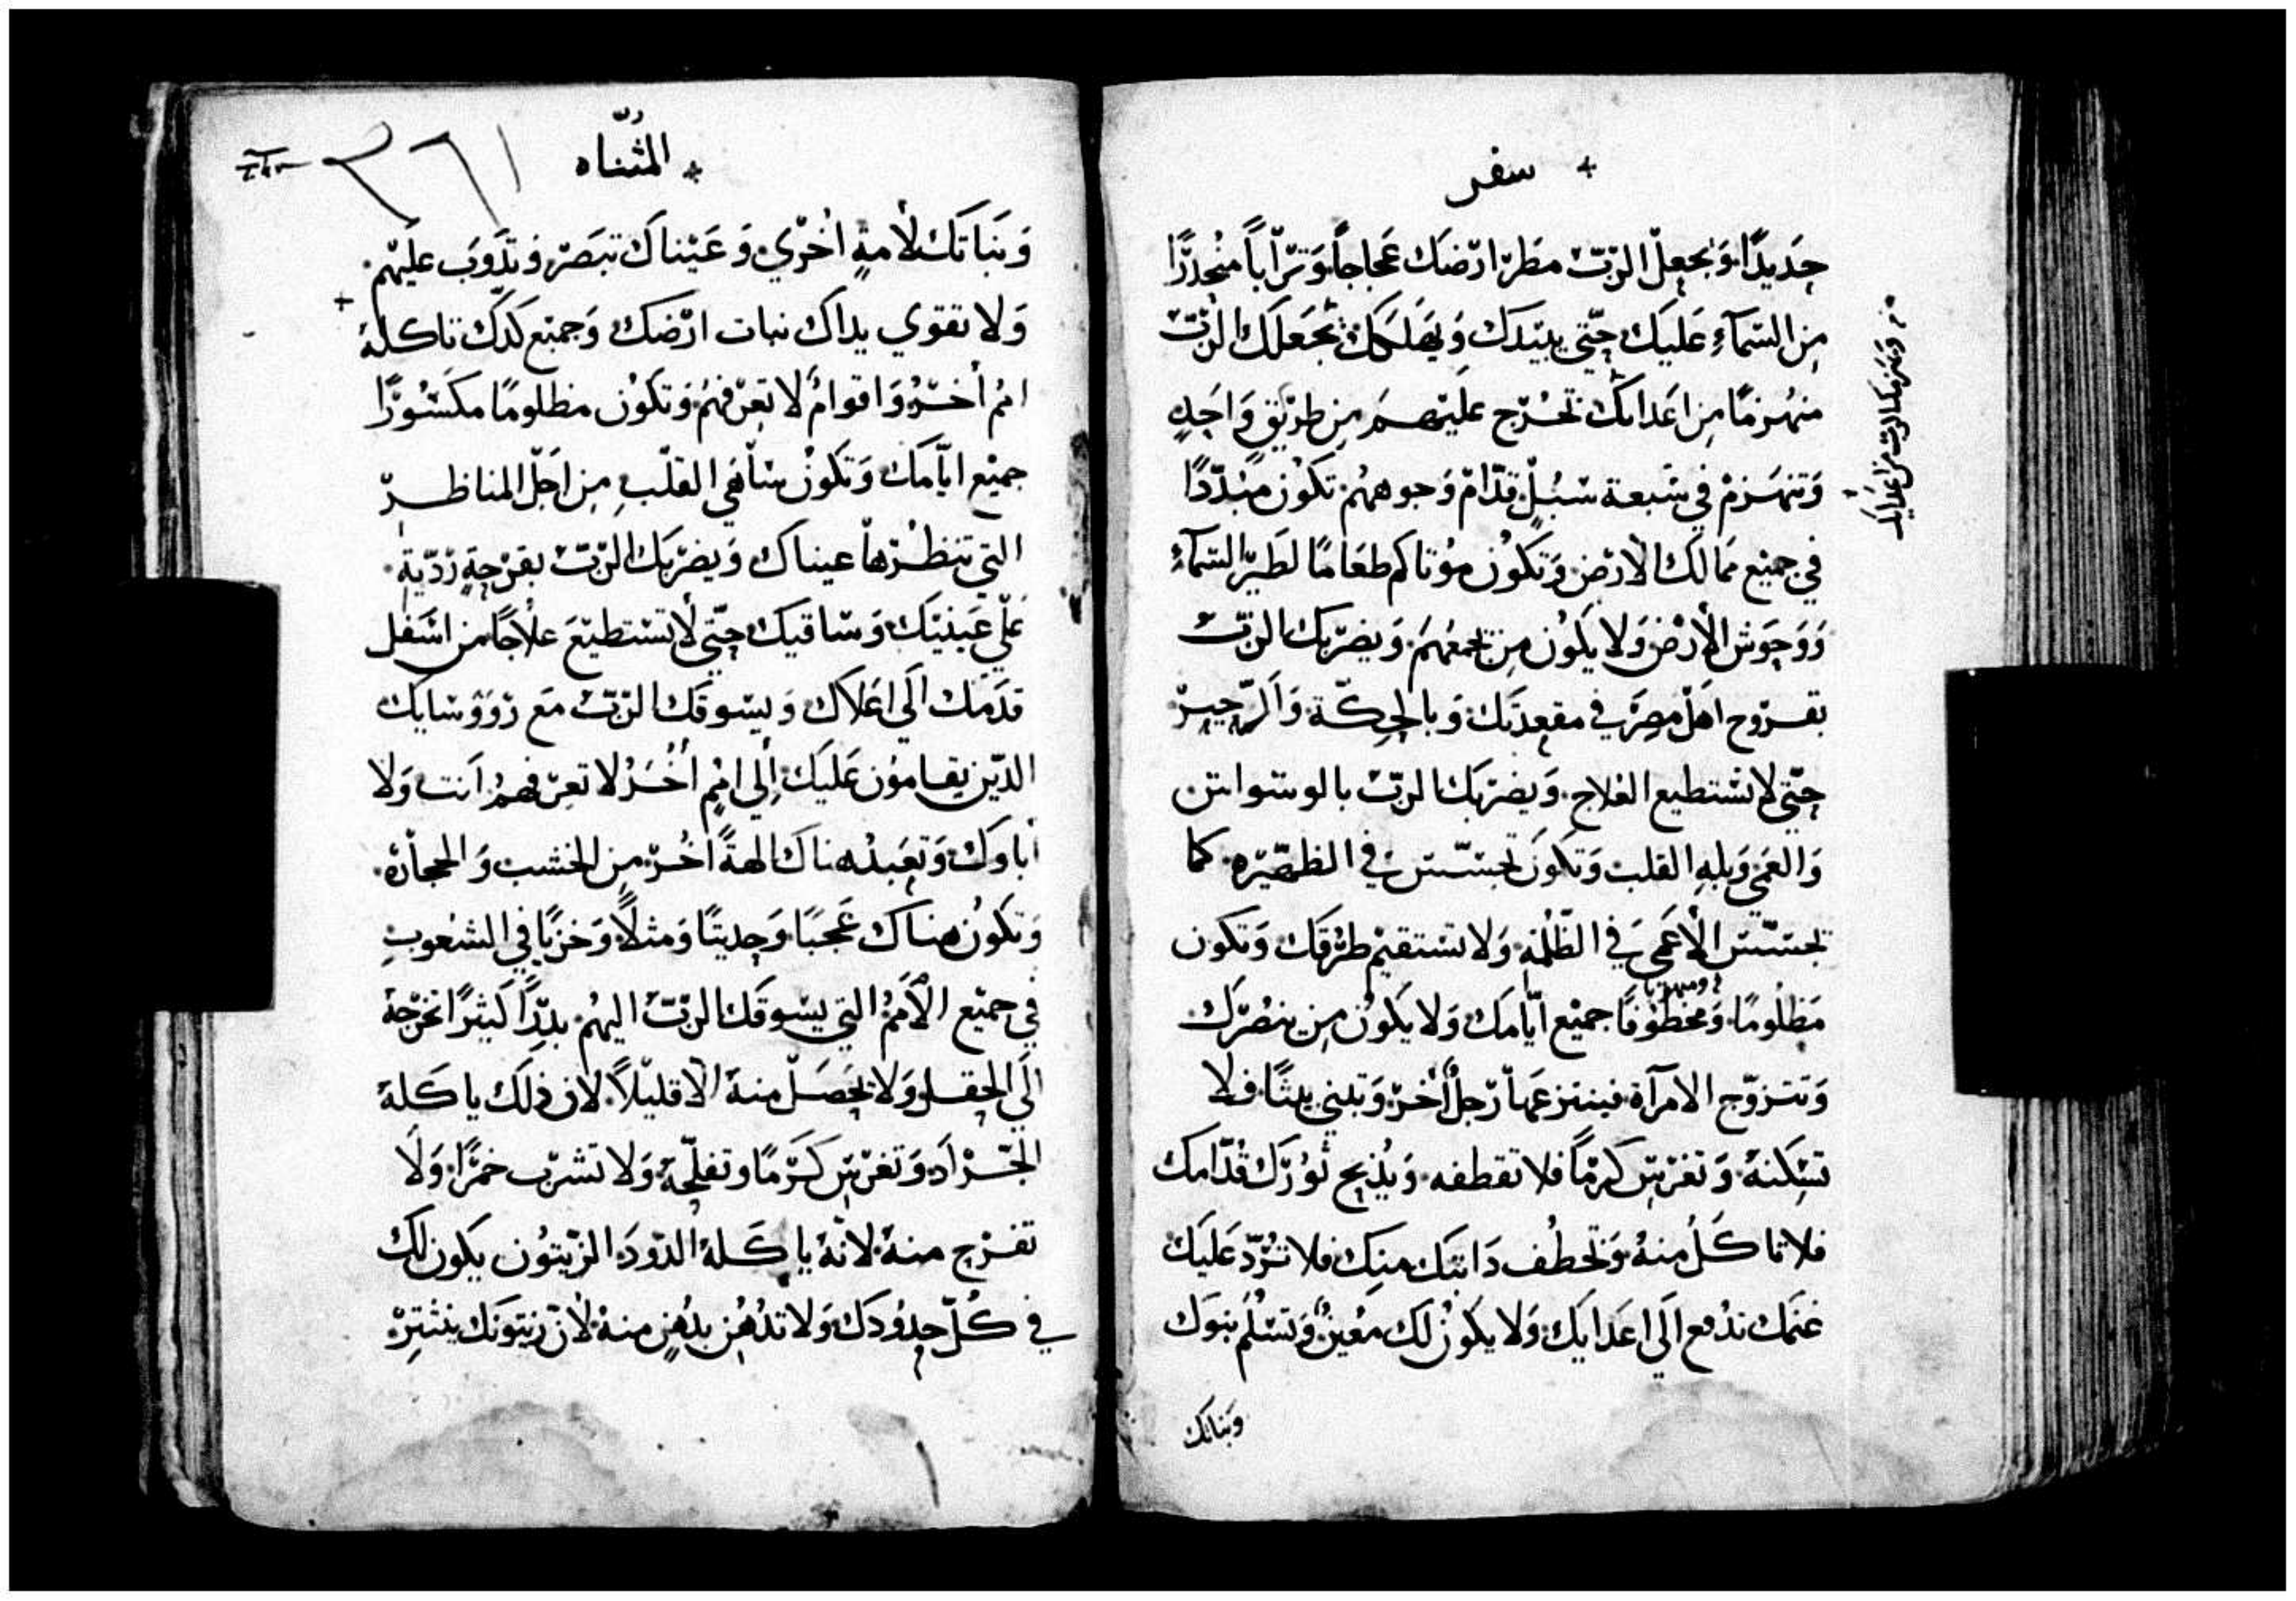 سفر
جَديدًا. وَيجعِلْ الرّبّ مطَر ارْضَك عَجاجاً وَترْاباً منُحدرًّا
مِن السّمَآءِ عَليَك حِتّي يبيّدَك وَيهَلكَك. يجَعَلَك الرّبّ
منهُزمًا مِن اعَدايَك تخُرج عليَهم مِن طرْيَقٍ وَاحِدٍ
وَتنهَزمْ في سَبعة سبُلْ قدّامْ وَجوههُم. تكَوُن مبُدّدًا
في جميَع مَمالَك الارْض. وَتكَوُن موُتاكم طعَامًا لطَيرّ السّمَآءِ
وَوَحِوَش الأرْض وَلا يكَوُن مِن يجمعَهمَ. وَيضرْبَك الرّبّ
بقروح اهَلْ مصِرَ في مقعِدتَك وَبالحِكّة وَالزحيرْ
حِتّي لا تسْتطيع العْلاج. وَيضرْبَك الرّبّ بالوسَواس
وَالعَمي وَبلهِ القلب وَتكَونَ تجسّس في الظهيّره. كما
تجسّس الْأعَمي في الظّلْمْه وَلا تستقيمْ طرْقَك وَتكَون
مَظلْومًا. وَمخُطوُفًا جميْع ايّامَك وَلا يكَوُن مِن ينصُرَك
وَتتزوّج الامرآة فينتزعَها رْجلْ أخُر وَتبني بيتًا فلا
تسِكنهُ. وَتغرْسِ كرمًا فلا تقطفه. وَيُذبح ثوُرَك قُدّامَك
فلا تاكَلُ منهُ وَتخطُف دَابتَك منِك فلا تُرْدّ عَليَك
غنمَك تدفع الَي اعَدايَك. وَلا يكَوُن لَك معُينٌ وَتسْلُم بنوَك
وَبناتَك
المثنّاه
٢٦١
وَبَناتَك لأمةٍ اخُرْي وَعَيْناكَ تبصَرْ وَتذَوَبَ علَيهْم.
وَلا تقوي يداَك نبات ارْضَك وَجميْع كدَك تاكلهُ
اممُ أخرُ وَاقوامٌ لا تعرْفهمُ وَتكَوُن مظلومًا مكَسُورًا
جميْع ايّامَك وَتكَوُن ساهَي القلْبِ مِن اجَلْ المناظرْ
التي تنظُرْها عيناَك وَيضرْبَك الرّبّ بقرْحِةٍ رْدّيةٍ.
عَلْي عَينيَك وَساقيَك حِتّي لأ تسْتطيعَ علأجًا من اسَفل
قدَمَك الَي اعَلاَك وَيسوقَك الرّبّ مَع رْوَوسَايَك
الدّين يقامون عَليَك. إلي اممٍ أخُرُ لا تعرْفهمُ اَنت وَلا
أباوَك. وَتعَبدُ هناَك الهةً أخُرْ مِن الخشب وَالحجأرْة.
وَتكَوُن هناَك عَجبًا. وَحِديثًا وَمثلًا وَخزْيًا في الشعُوبِ
في جميْع الأمَمُ التي يسوقَك الرّبّ اليهمُ. بدرًا كثيرًا تخرْجهُ
الَي الحقلِ وَلا تحصَلْ منهُ الّا قليْلًا. لان ذلَك ياكَلهُ
الجَرْاد وَتغرْس كَرْمًا وتفلحّهُ وَلا تشرْب خمرًا وَلا
تفرْح منهُ. لانهُ ياكَلهُ الدّودَ الزيْتوُن يكَون لَك
في كلّ حِدوُدَك وَلا تدُهنِ بدُهنٍ منهُ لأن زيْتونَك ينتثرْ